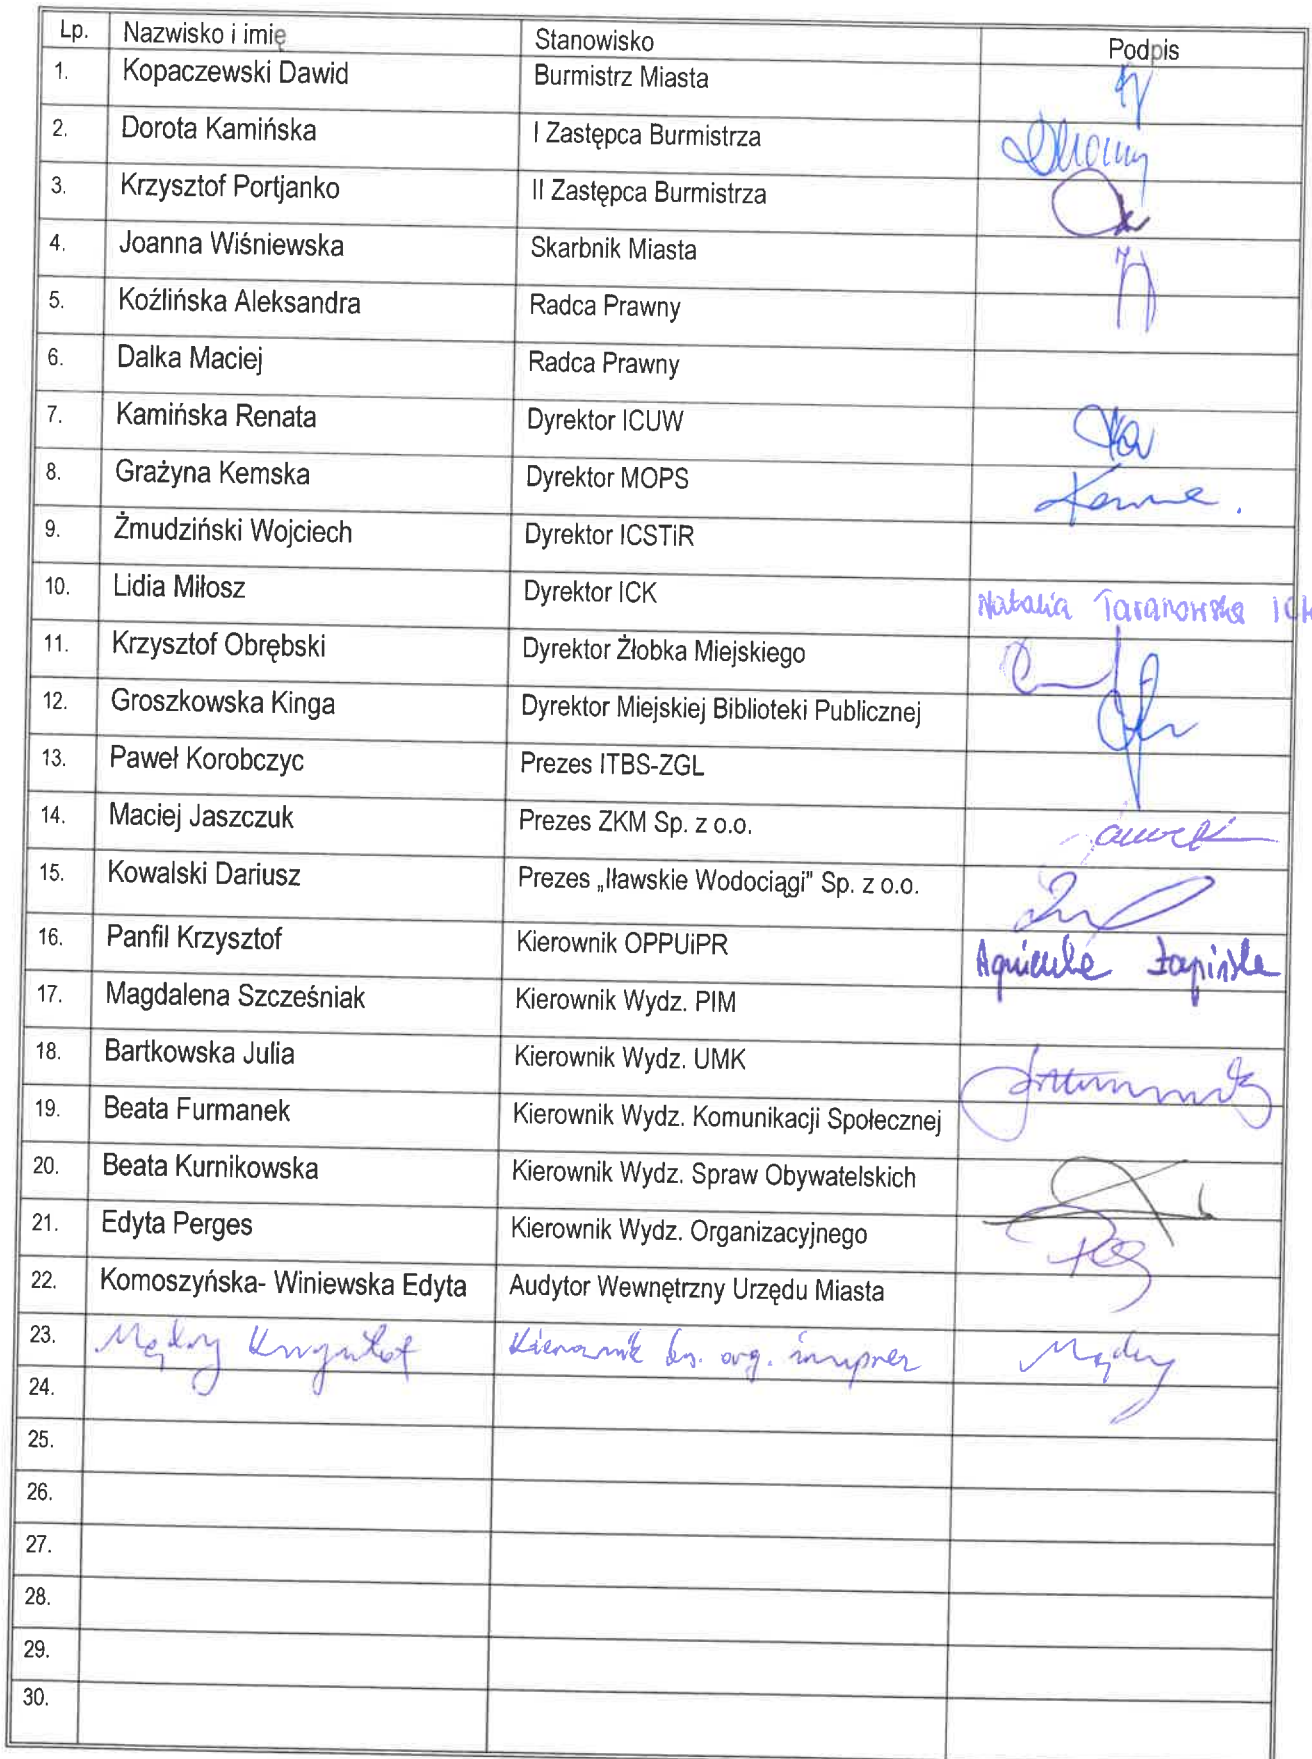 Lp. Nazwisko i imię Stanowisko Podpis
1. Kopaczewski Dawid Burmistrz Miasta
2. Dorota Kamińska I Zastępca Burmistrza
3. Krzysztof Portjanko II Zastępca Burmistrza
4. Joanna Wiśniewska Skarbnik Miasta
5. Koźlińska Aleksandra Radca Prawny
6. Dalka Maciej Radca Prawny
7. Kamińska Renata Dyrektor ICUW
8. Grażyna Kemska Dyrektor MOPS
9. Żmudziński Wojciech Dyrektor ICSTiR
10. Lidia Miłosz Dyrektor ICK Natalia Taranowska ICK
11. Krzysztof Obrębski Dyrektor Żłobka Miejskiego
12. Groszkowska Kinga Dyrektor Miejskiej Biblioteki Publicznej
13. Paweł Korobczyc Prezes ITBS-ZGL
14. Maciej Jaszczuk Prezes ZKM Sp. z o.o.
15. Kowalski Dariusz Prezes „Iławskie Wodociągi" Sp. z o.o.
16. Panfil Krzysztof Kierownik OPPUiPR Agnieszka Łapińska
17. Magdalena Szcześniak Kierownik Wydz. PIM
18. Bartkowska Julia Kierownik Wydz. UMK
19. Beata Furmanek Kierownik Wydz. Komunikacji Społecznej
20. Beata Kurnikowska Kierownik Wydz. Spraw Obywatelskich
21. Edyta Perges Kierownik Wydz. Organizacyjnego
22. Komoszyńska- Winiewska Edyta Audytor Wewnętrzny Urzędu Miasta
23. Mądry Krzysztof Kierownik org. imprez Mądry
24.
25.
26.
27.
28.
29.
30.